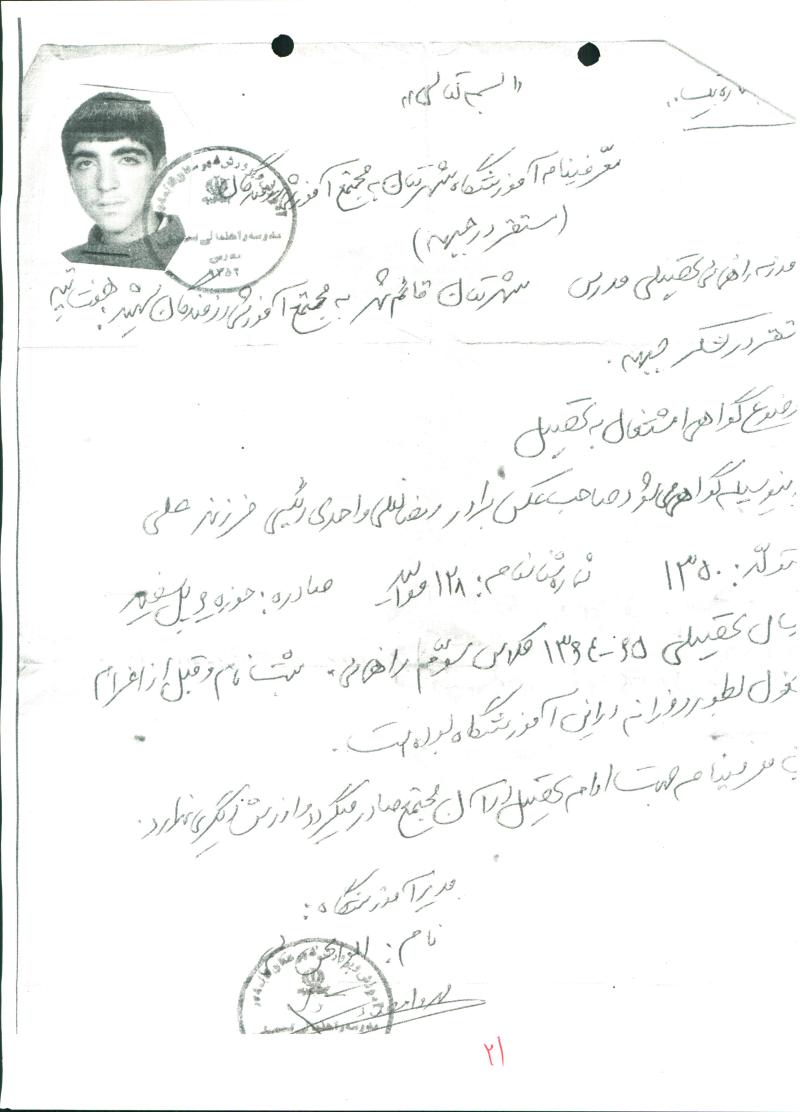 «بسمه تعالی»
معرفینامه آموزشگاه شهرستان به مجتمع آموزشی رزمندگان
(مستقر در جبهه)
مدرسه راهنمائی تحصیلی مدرس شهرستان قائم شهر به مجتمع آموزشی رزمندگان شهید هفت تپه
مستقر در لشکر جبهه.
موضوع گواهی اشتغال به تحصیل
بدینوسیله گواهی میشود صاحب عکس برادر رمضانعلی واحدی رئیسی فرزند علی
متولد: ۱۳۵۰ شماره شناسنامه: ۱۲۸ صادره: حوزه پل سفید
سال تحصیلی ۶۵-۱۳۶۴ کلاس سوم راهنمائی ثبت نام و قبل از اعزام
بطور روزانه در این آموزشگاه بوده است.
معرفینامه جهت ادامه تحصیل در آن مجتمع صادر میگردد و ارزش دیگری ندارد.
مدیر آموزشگاه:
نام:
مدرسه راهنمائی
مدرس
۱۳۵۲
۲۱